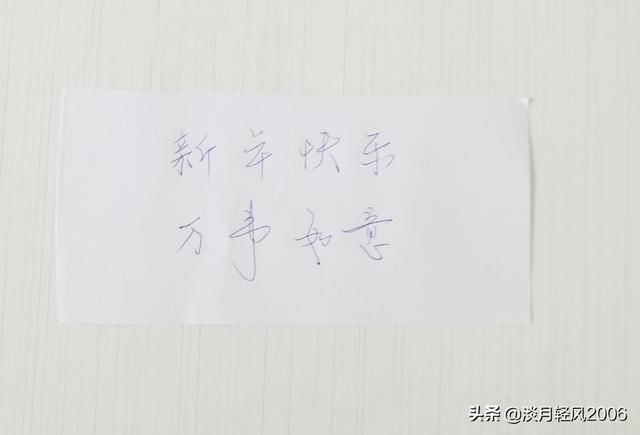 新年快乐
万事如意
头条 @淡月轻风2006